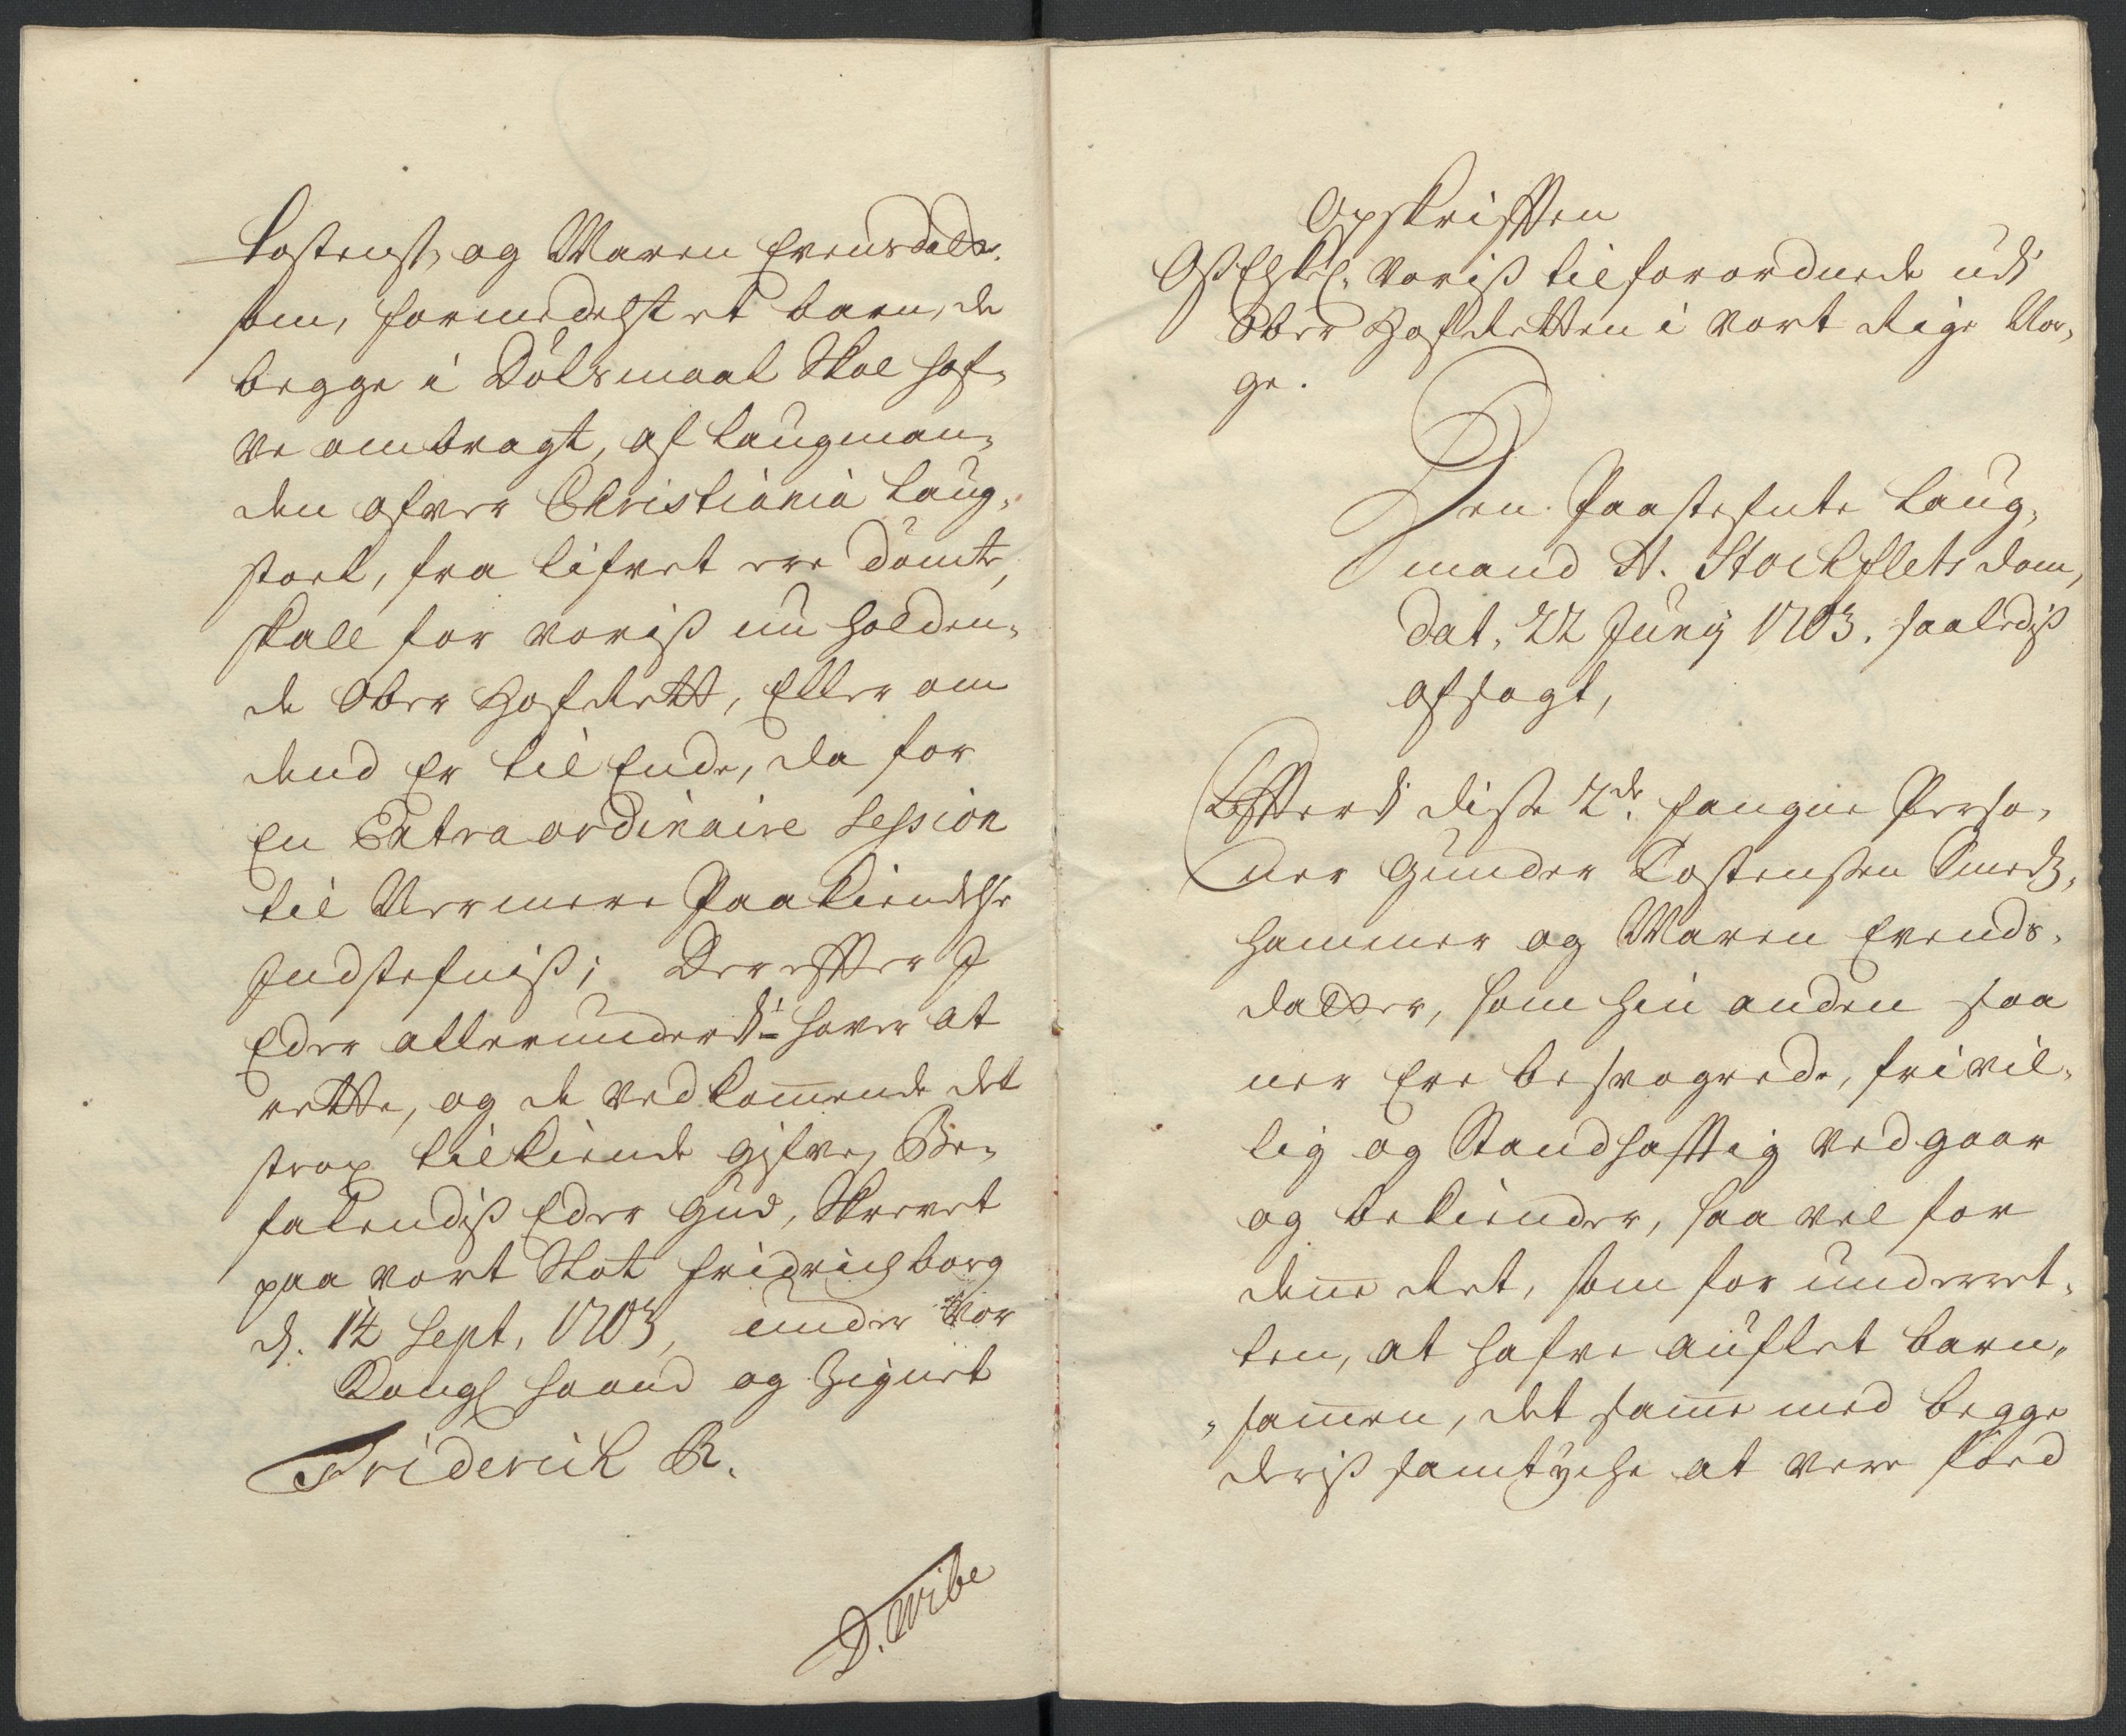 Tostensø, og Maren Evensdatr.
som, formedelst et barn, de
begge i Dølsmaal Skal haf„
ve ombragt, af Laugman„
den ofver Christiania Laug„
stoel, fra lifvet ere dømte,
skall for voris nu holden„
de Ober Hof Rett, Eller om
dend Er til Ende, da for
En Extraordinaire session
til Nermere Paakiendelse
Indstefnis; Derefter I
Eder allerunderd: haver at
rette, og de vedkom̅ende det
strax tilkiende gifve, Be„
falendis Eder Gud, Skrevet
paa vort Slot Fridrichsborg
d. 14 Sept, 1703, under Vor
Kongl haand og Signet
Friderich R.
D. Wibe
Opskriften
Os Elskel. voris tilforordnede udi
Ober Hof Retten i vort Rige Nor„
ge.
Den Paastefnte Laug„
mand H. Stockflets dom,
dat. 22 Junij 1703. saaledis
afsagt,
Efterdi disse 2de fangne Perso„
ner Gunder Tostensen Smeds„
hammer og Maren Evends„
datter, som hin anden saa
ner Ere besvogrede, frivil„
lig og Standhafftig vedgaar
og bekiender, saa vel for
den̅e Ret, som for underret„
ten, at hafve auflet barn„
„sam̅en, det sam̅e med begge
deris samtyche at vere fød